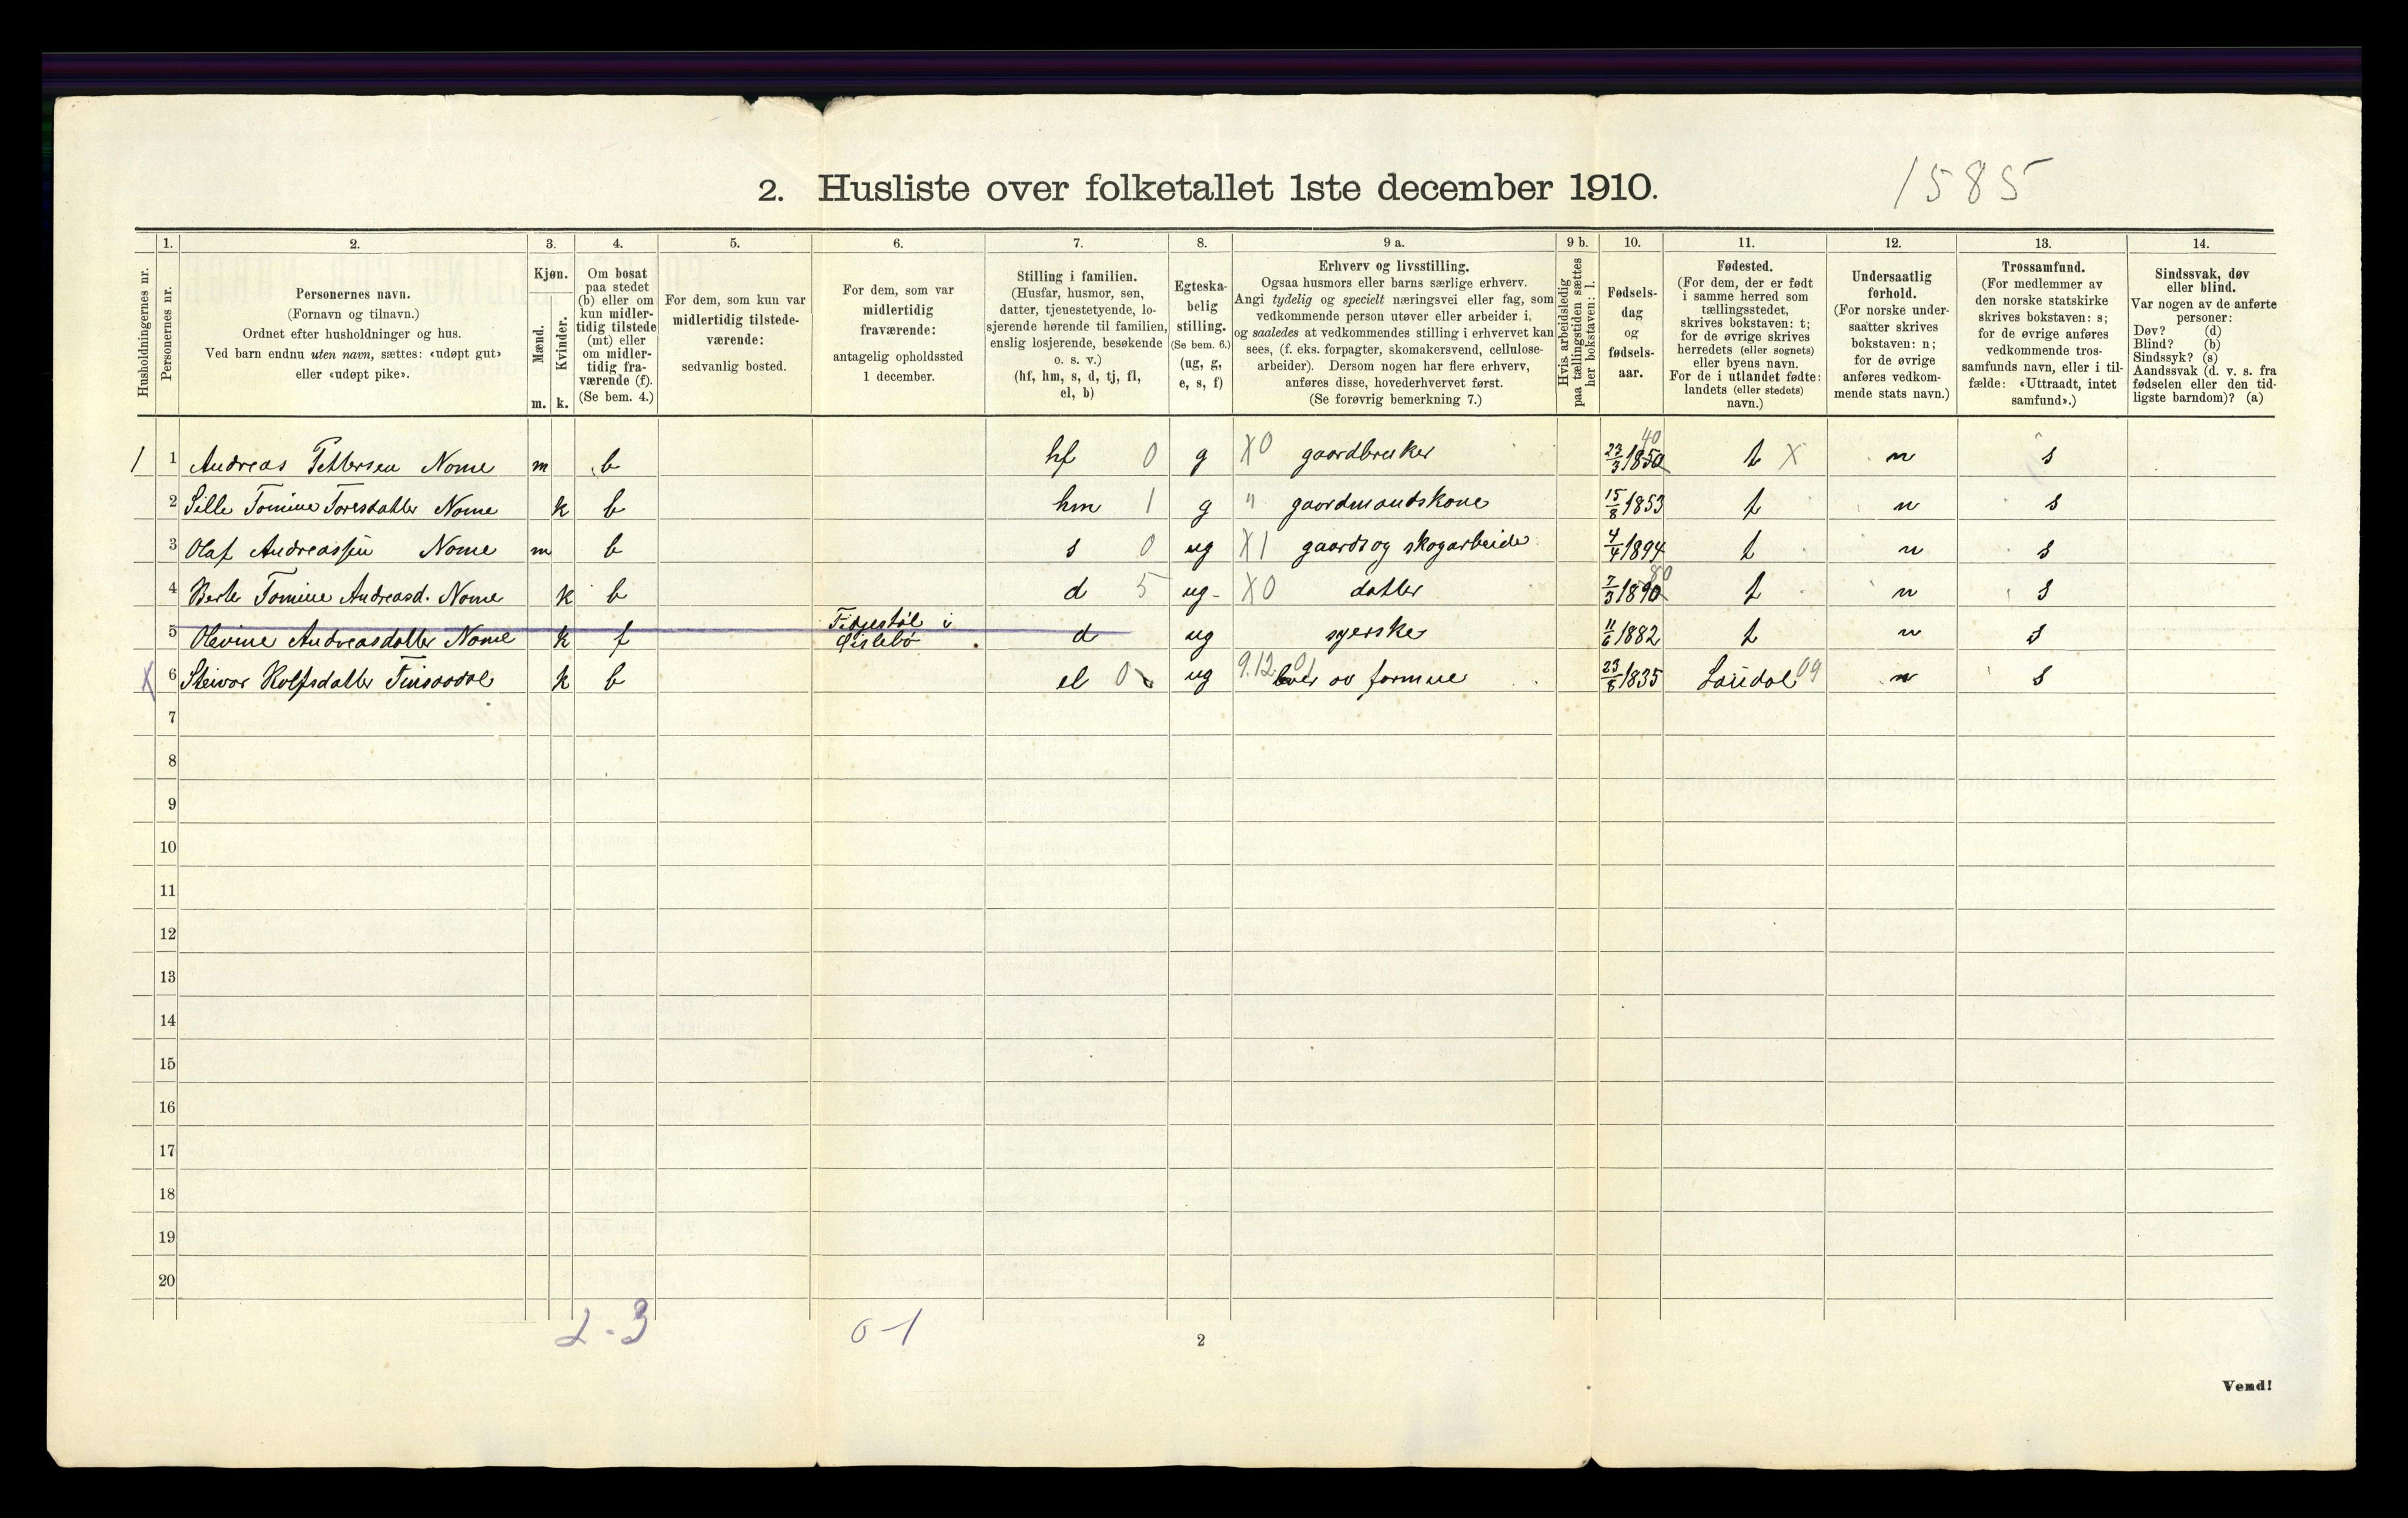 1585
2. Husliste over folketallet 1ste december 1910.
Husholdningernes nr.
1.
Personernes nr.
2.
Personernes navn.
(Fornavn og tilnavn.)
Ordnet efter husholdninger og hus.
Ved barn endnu uten navn, sættes: «udøpt gut»
eller «udøpt pike».
3.
Kjøn.
Mænd.
Kvinder.
m. k.
4.
Om bosat
paa stedet
(b) eller om
kun midler-
tidig tilstede
(mt) eller
om midler-
tidig fra-
værende (f).
(Se bem. 4.)
5.
For dem, som kun var
midlertidig tilstede-
værende:
sedvanlig bosted.
6.
For dem, som var
midlertidig
fraværende:
antagelig opholdssted
1 december.
7.
Stilling i familien.
(Husfar, husmor, søn,
datter, tjenestetyende, lo-
sjerende hørende til familien,
enslig losjerende, besøkende
o. s. v.)
(hf, hm, s, d, tj, fl,
el, b)
8.
Egteska-
belig
stilling.
(Se bem. 6.)
(ug, g,
e, s, f)
9 a.
Erhverv og livsstilling.
Ogsaa husmors eller barns særlige erhverv.
Angi tydelig og specielt næringsvei eller fag, som
vedkommende person utøver eller arbeider i,
og saaledes at vedkommendes stilling i erhvervet kan
sees, (f. eks. forpagter, skomakersvend, cellulose-
arbeider). Dersom nogen har flere erhverv,
anføres disse, hovederhvervet først.
(Se forøvrig bemerkning 7.)
9 b.
Hvis arbeidsledig
paa tællingstiden sættes
her bokstaven: l.
10.
Fødsels-
dag
og
fødsels-
aar.
11.
Fødested.
(For dem, der er født
i samme herred som
tællingsstedet,
skrives bokstaven: t;
for de øvrige skrives
herredets (eller sognets)
eller byens navn.
For de i utlandet fødte:
landets (eller stedets)
navn.)
12.
Undersaatlig
forhold.
(For norske under-
saatter skrives
bokstaven: n;
for de øvrige
anføres vedkom-
mende stats navn.)
13.
Trossamfund.
(For medlemmer av
den norske statskirke
skrives bokstaven: s;
for de øvrige anføres
vedkommende tros-
samfunds navn, eller i til-
fælde: «Uttraadt, intet
samfund».)
14.
Sindssvak, døv
eller blind.
Var nogen av de anførte
personer:
Døv? (d)
Blind? (b)
Sindssyk? (s)
Aandssvak (d. v. s. fra
fødselen eller den tid-
ligste barndom)? (a)
1 1 Andreas Pettersen Nome m b hf 0 g X0 gaardbruker 23/3 1850 40 t X n s
2 Sille Tomine Toresdatter Nome k b hm 1 g " gaardmandskone 15/8 1853 t n s
3 Olaf Andreassen Nome m b s 0 ug X1 gaards og skogarbeide 4/4 1894 t n s
4 Berte Tomine Andreasd. Nome k b d 5 ug X0 datter 7/3 1890 80 t n s
5 Olevine Andreasdatter Nome k f i Øislebø d ug syerske 11/6 1882 t n s
X 6 Steivor Rolfsdatter k b el 0 ug 9.12 lever av formue 23/8 1835 Laudal 09 n s
7
8
9
10
11
12
13
14
15
16
17
18
19
20
2-3
0-1
2
Vend!